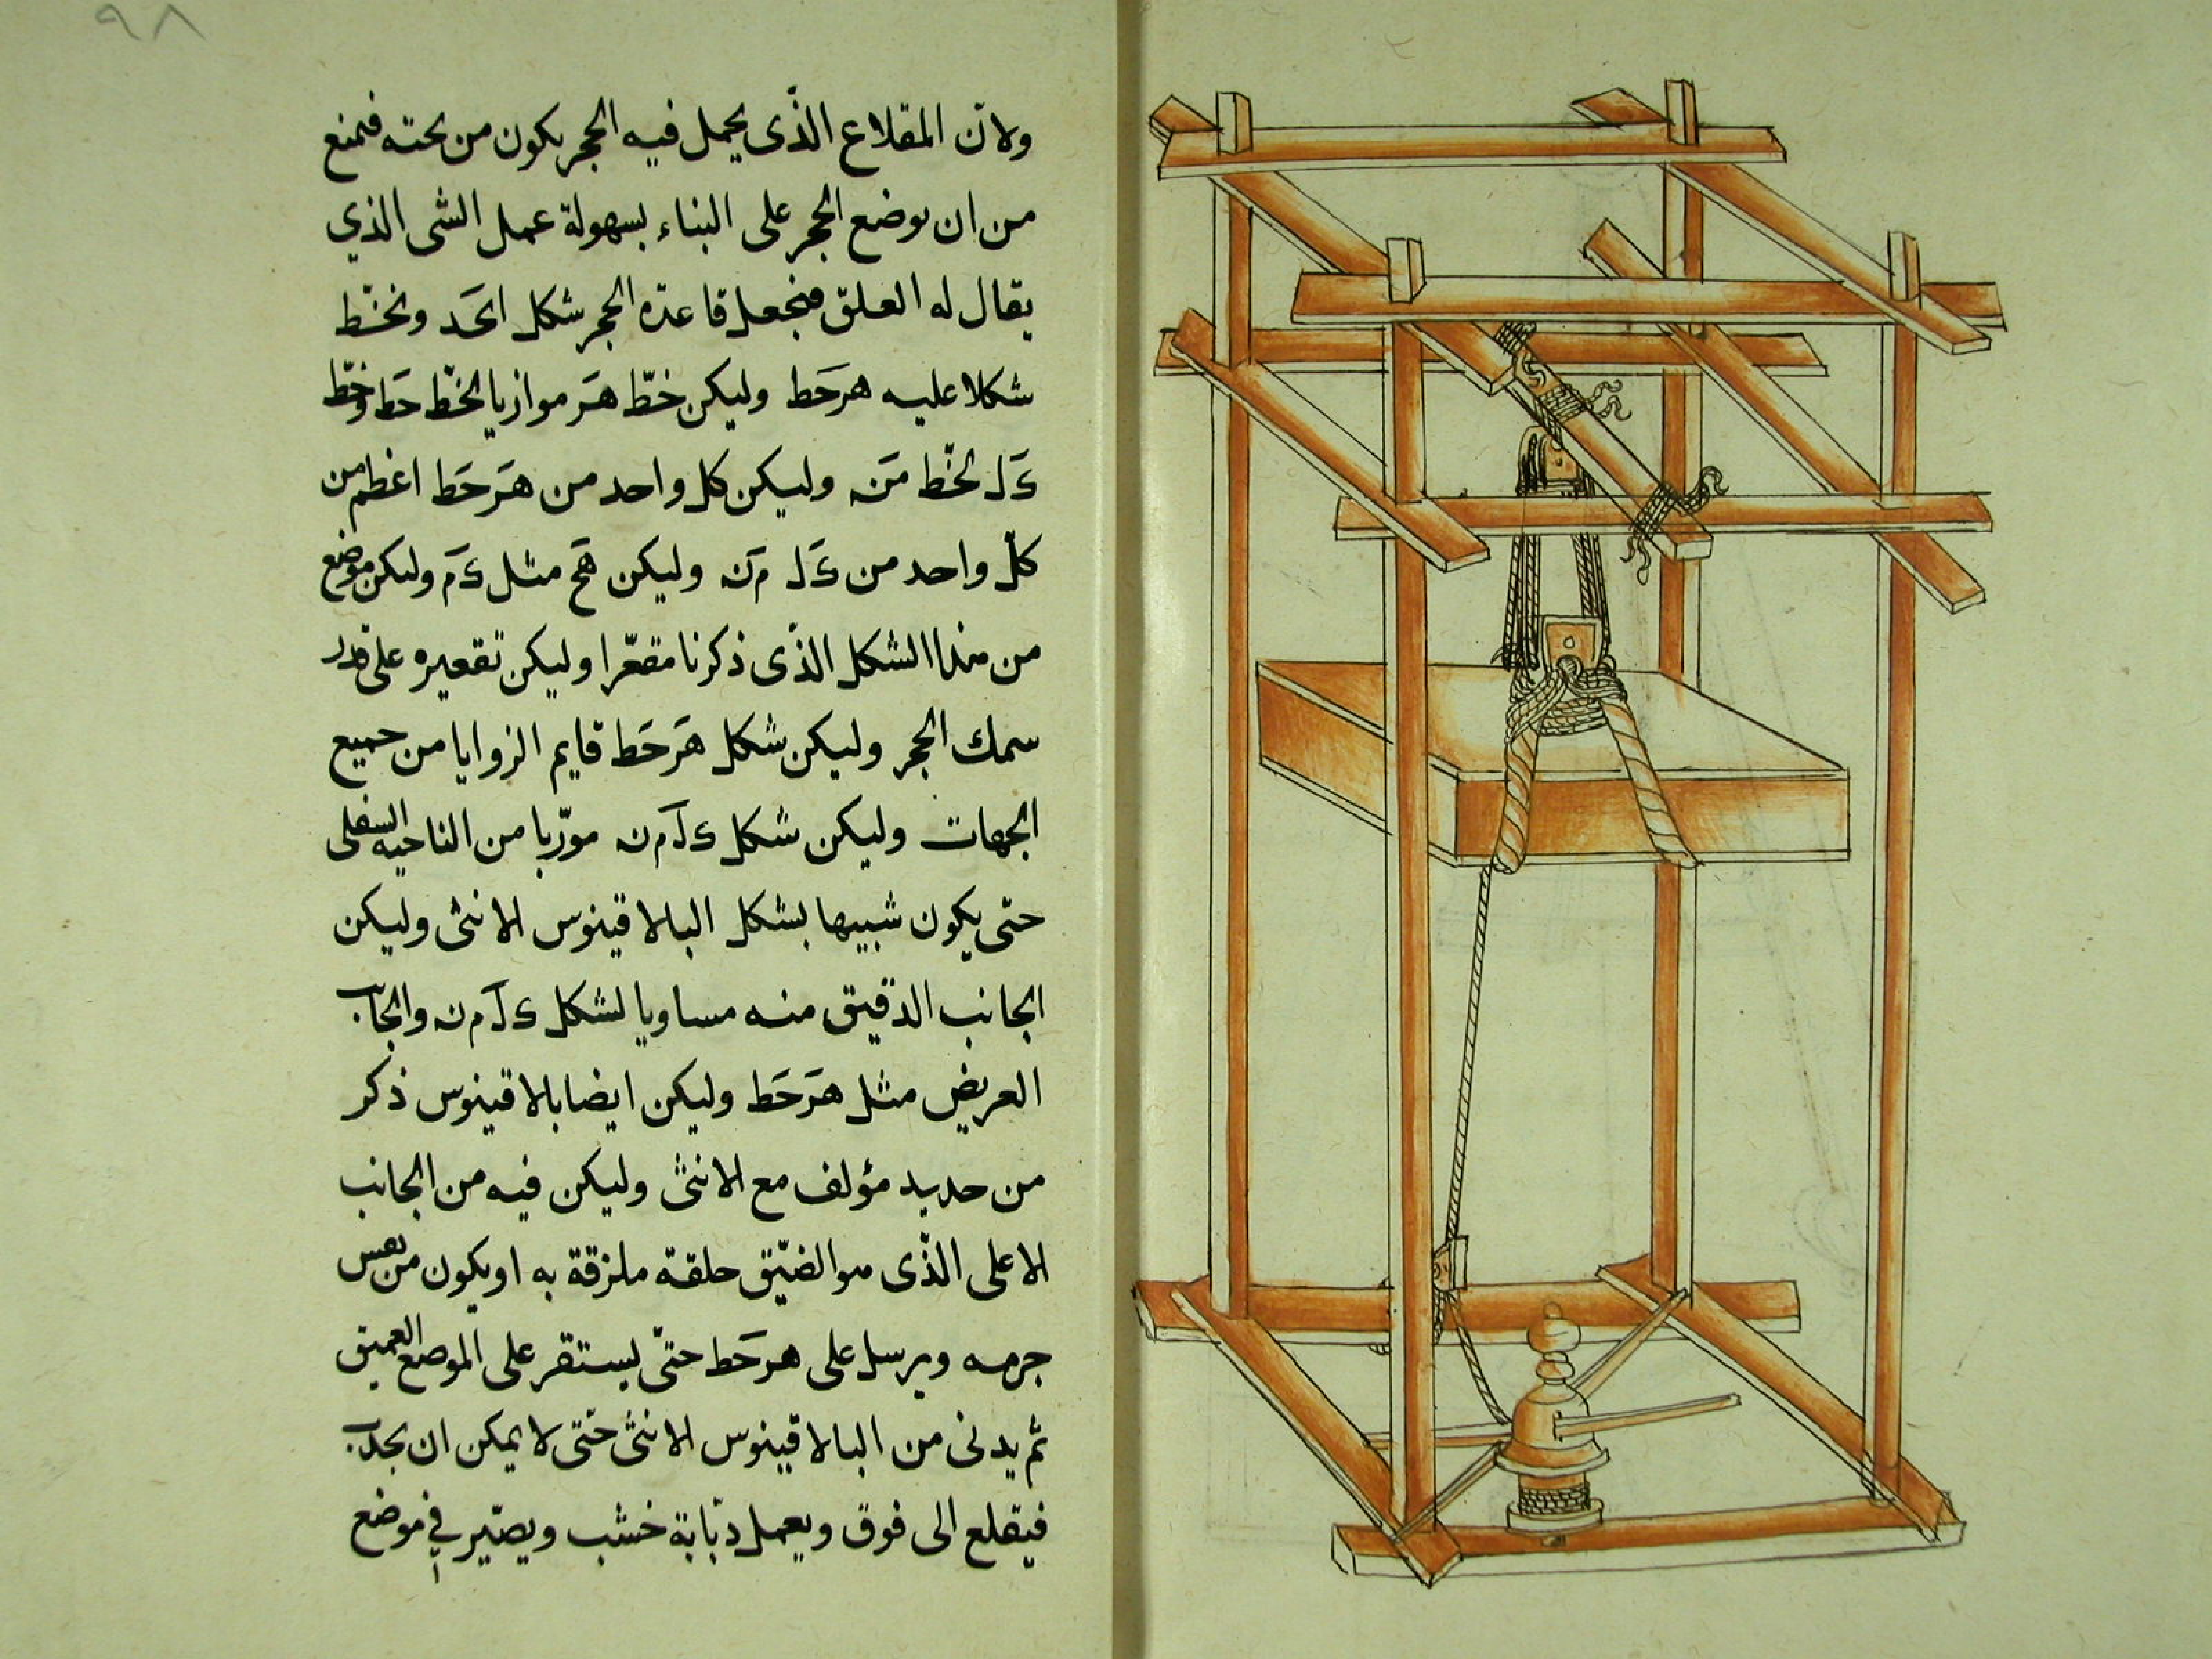 ٩٨
ولان المقلاع الذّى يحمل فيه الحجر يكون من تحته فمنع
من ان يوضع الحجر على البناء بسهولة عمل الشى الذي
يقال له العلق فنجعل قاعدة الحجر شكل ا ونخّط
شكلا عليه هَرحَط وليكن خطّ هَر موازيا لخّط حَط وخّط
كَل لخّط مَن وليكن كل واحد من هَرحَط اعظم من
كلّ واحد من كَل مَن وليكن هَح مثل كَم وليكن موضع
من هذا الشكل الذّى ذكرنا مقعّرا وليكن تقعيره على قدر
سمك الحجر وليكن شكل هَرحَط قايم الزوايا من جميع
الجهات وليكن شكل كلَمن مورّبا من الناحيه السفلى
حتى يكون شبيها بشكل البالاقينوس الانثى وليكن
الجانب الدّقيق منه مساويا لشكل كلَمن والجانب
العريض مثل هَرحَط وليكن ايضا بالاقينوس ذكر
من حديد مؤلف مع الانثى وليكن فيه من الجانب
الاعلى الذّى هو الضّيّق حلقة ملزقة به او يكون من نفس
جرمه ويرسل على هرحَط حتىّ يستقر على الموضع العميق
ثم يدنى من البالاقينوس الانثى حتّى لا يمكن ان يجذب
فيقلع الى فوق ويعمل دبّابة خشب ويصّير في موضع